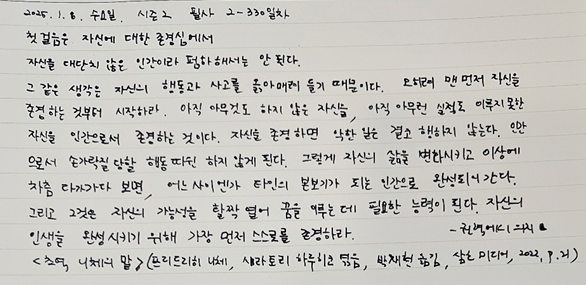 2025. 1. 8. 수요일. 시즌2 필사 2-330일차
첫 걸음은 자신에 대한 존경심에서
자신을 대단치 않은 인간이라 폄하해서는 안 된다.
그 같은 생각은 자신의 행동과 사고를 옭아매려 들기 때문이다. 오히려 맨 먼저 자신을
존경하는 것부터 시작하라. 아직 아무것도 하지 않은 자신을, 아직 아무런 실적도 이루지 못한
자신을 인간으로서 존경하는 것이다. 자신을 존경하면 악한 일은 결코 행하지 않는다. 인간
으로서 손가락질 당할 행동 따윈 하지 않게 된다. 그렇게 자신의 삶을 변화시키고 이상에
차츰 다가가다 보면, 어느 사이엔가 타인의 본보기가 되는 인간으로 완성되어 간다.
그리고 그것은 자신의 가능성을 활짝 열어 꿈을 이루는 데 필요한 능력이 된다. 자신의
인생을 완성시키기 위해 가장 먼저 스스로를 존경하라. - 권력에의 의지
<초역 니체의 말> (프리드리히 니체, 시라토리 하루히코 엮음, 박재현 옮김, 삼호미디어, 2022, P.21)